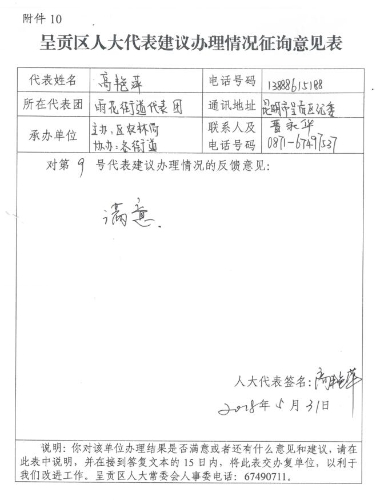 附件 10
呈贡区人大代表建议办理情况征询意见表
代表姓名 高艳萍 电话号码 13888615188
所在代表团 雨花街道代表团 通讯地址 昆明市呈贡区
承办单位 主办：区农林局 联系人及 晋永华
协办：各街道 电话号码 0871-67497537
对第 9 号代表建议办理情况的反馈意见：
满意.
人大代表签名：高艳萍
2018年 5 月 31 日
说明：你对该单位办理结果是否满意或者还有什么意见和建议，请在
此表中说明，并在接到答复文本的 15 日内，将此表交办复单位，以利于
我们改进工作。呈贡区人大常委会人事委电话：67490711.